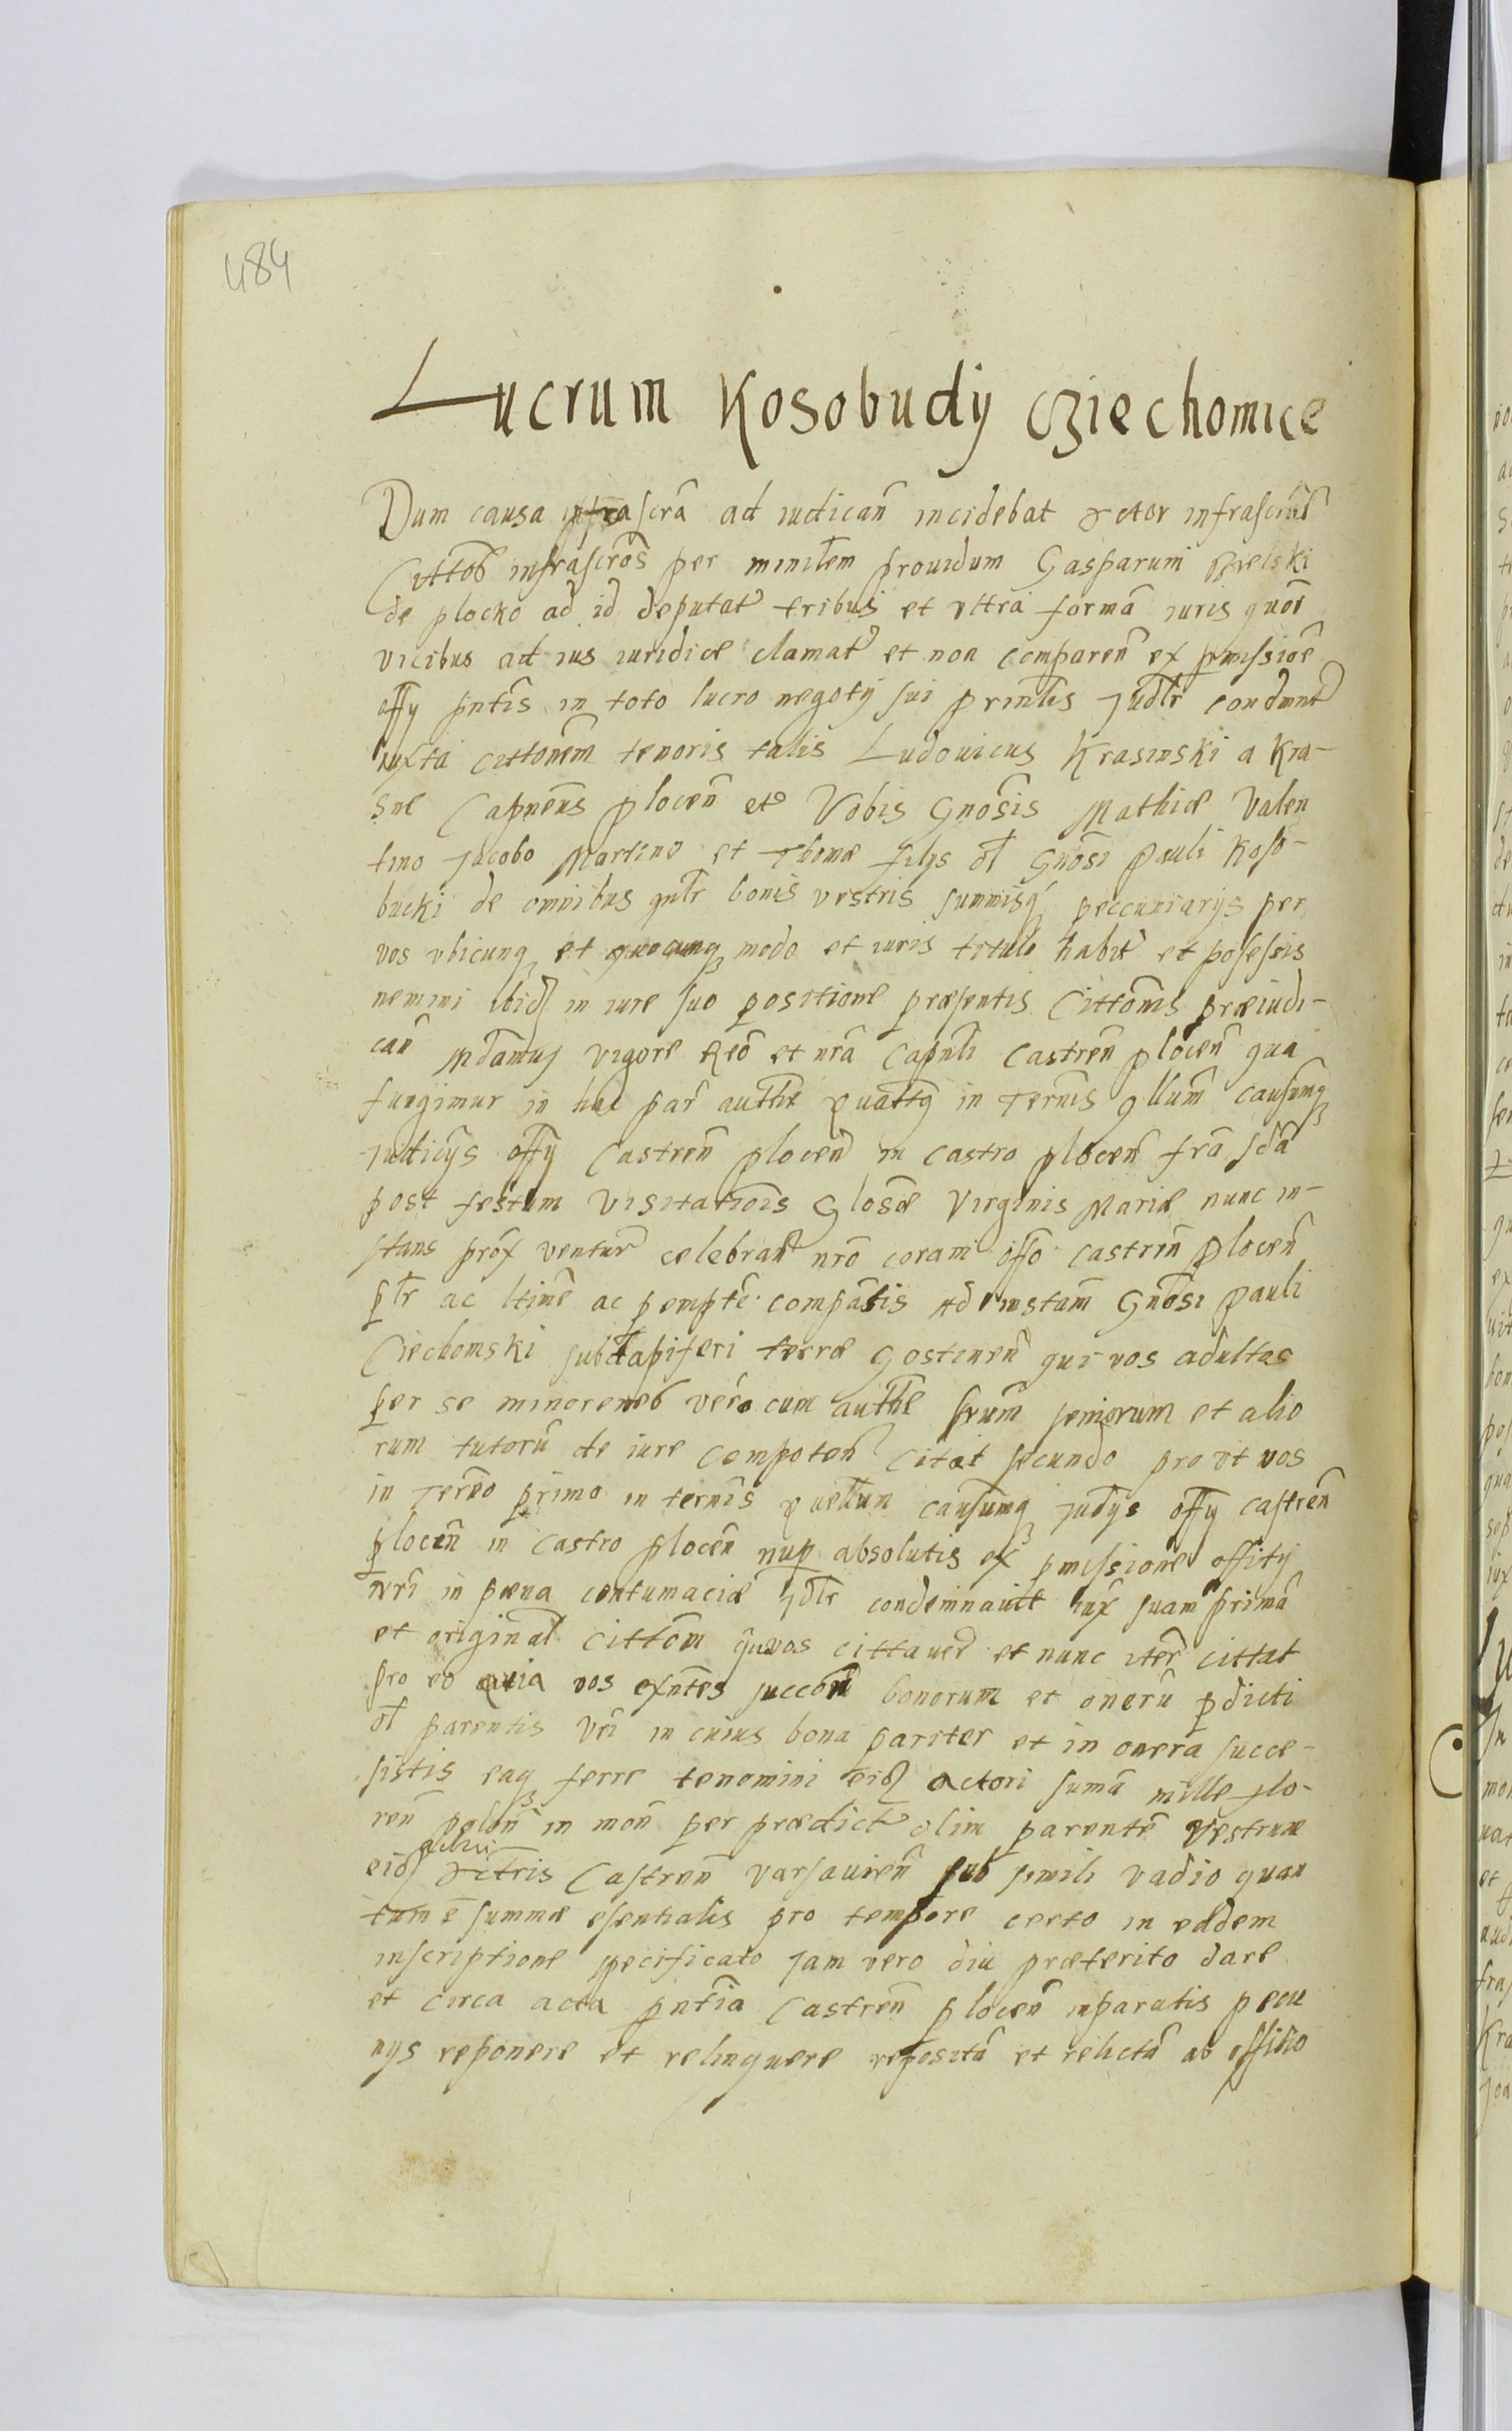 484
Lucrum Kosobudÿ Cziechomice
Dum causa infrascrã ad iudicañ incidebat Actor infrascrũs
Cittõs infrascrõs per minilem prouidum Gasparum Bielski
de plocko ad id deputat tribus et vltra formã iuris quor
vicibus ad ius iuridicæ clamat et non compareñ ex pmissiõe
offÿ pñtis in toto lucro negotÿ sui prinlis Judlr condmnt
iuxta cittonem tenoris talis Ludouicus Krasinski a Kra-
sne Capneus plocen̄ etc Vobis Gnosis Mathiæ Valen
tino Jacobo Martino et Thomæ filÿs ol Gnosi Pauli Koso-
bucki de omnibus gnlr bonis vestris summisq peccuniarÿs per
vos vbicunq et quocunq modo et iuris titulo habit et possessis
nemini ibid in iure suo positione præsentis Cittonis præiudi-
cañ Mdamus vigore Reõ et nrã Capnli Castreñ plocen̄ qua
fungimur in hac par authe quattq in Terñis qllum causumq
Judicÿs offÿ Castreñ plocen̄ in Castro plocen̄ frã scdã
post festum Visitatiõis Glosæ Virginis Mariæ nunc in-
stans prox ventur celebrañ nrõ coram offo castreñ plocen̄
plr ac ltime ac pempte compatis Ad instam Gnosi Pauli
Ciechomski subdapiferi terræ Gostineñ qui vos adultas
per se minorenes vero cum authe frum seniorum et alio
rum tutorũ de iure competeñ Citat secundo pro vt vos
in Termõ primo in termis quellum causumq Judÿs offÿ castreñ
plocen̄ in Castro plocen̄ nup absolutis ex pmissione offitÿ
nri in pœna contumaciæ Jdlr condemnauit iux suam primã
et original cittom qua vos cittauer et nunc iter cittat
pro eo quia vos exñtes succom̃ bonorum et onerũ pdicti
ol parentis Vri in cuius bona pariter et in onera succe-
sistis eaq ferre tenemini eid actori sumã mille flo-
reñ poloñ in moñ per prædict olim parentẽ vestrum
eid Actris Castreñ varsauieñ sub simili vadio quan
tum ẽ summæ esentialis pro tempore certo in eadem
inscriptione specificato Jam vero diu præterito dare
et circa acta pñtia Castreñ plocen̄ inparatis pecu
nÿs reponere et relinquere repositã et relictã ab offitio